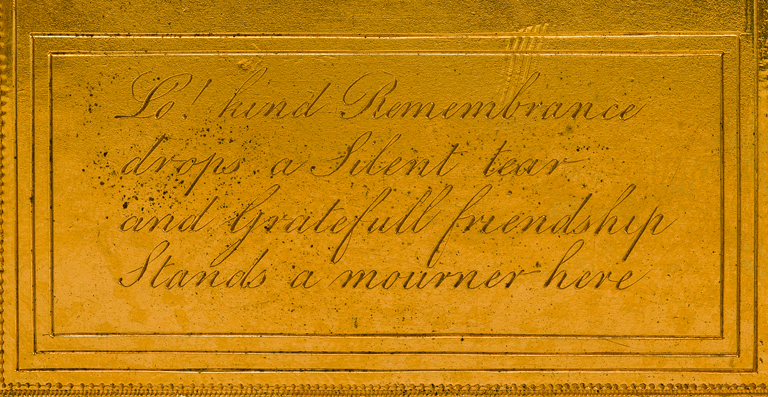 Lo! kind Remembrance
drops a Silent tear
and Gratefull friendship
Stands a mourner here